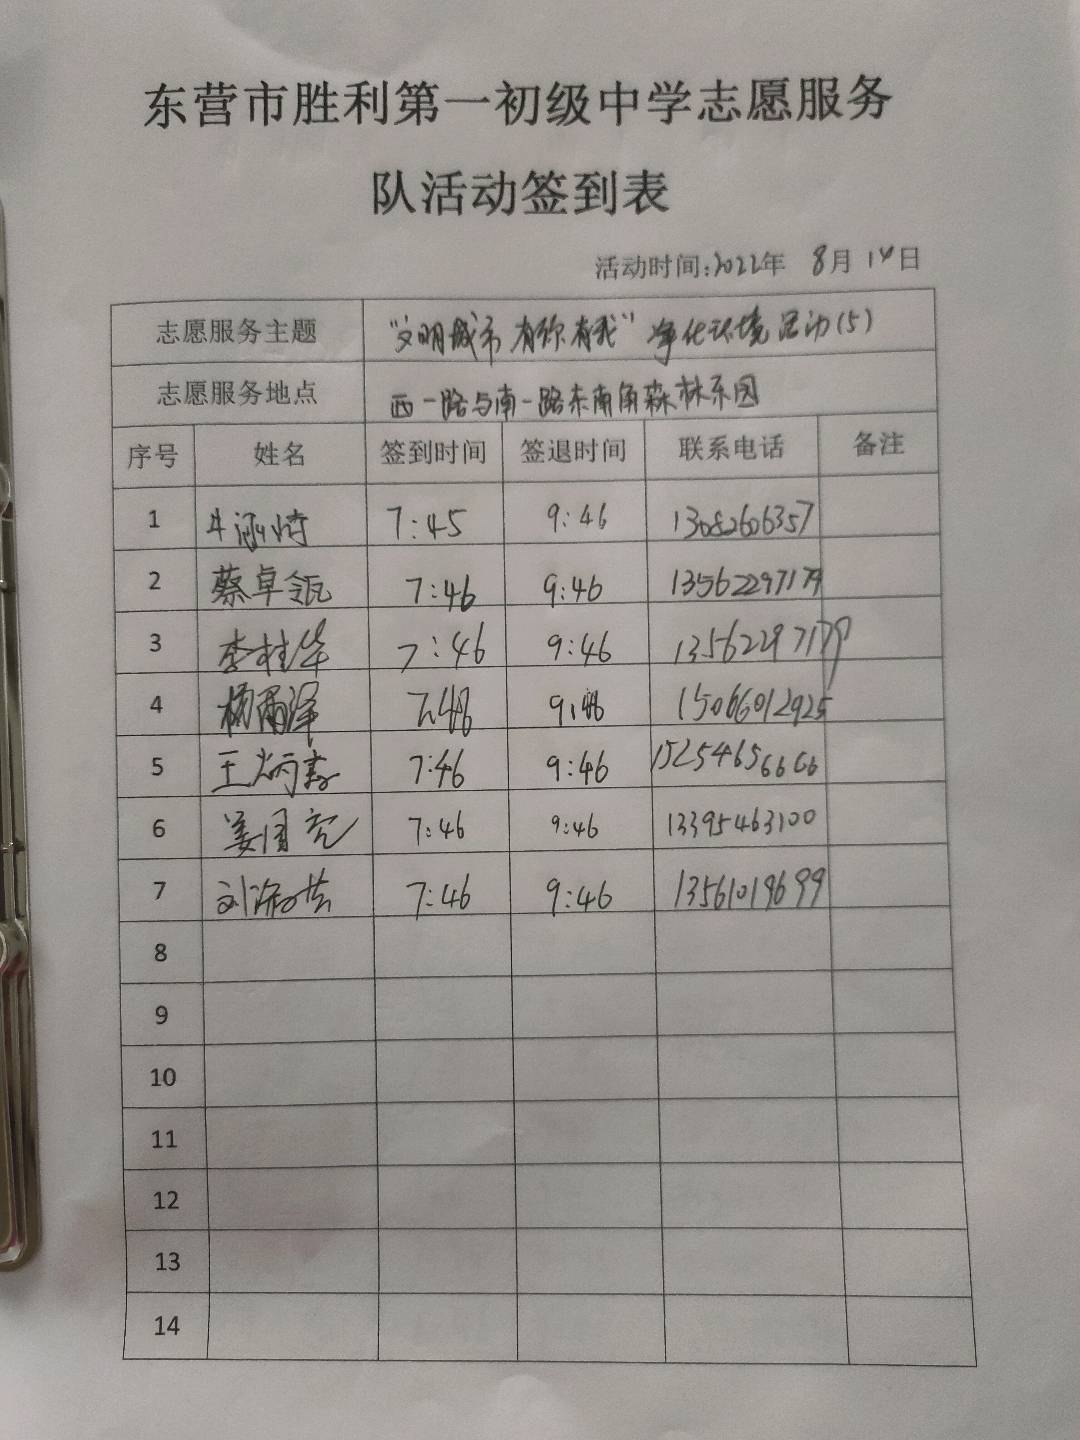 东营市胜利第一初级中学志愿服务
队活动签到表
活动时间:2022年 8月 14日
志愿服务主题 “文明城市 有你有我”净化环境活动(5)
志愿服务地点 西一路与南一路东南角森林乐园
序号 姓名 签到时间 签退时间 联系电话 备注
1 牛涵崎 7:45 9:46 13082606357
2 蔡卓瓴 7:46 9:46 13562297179
3 李桂华 7:46 9:46 13562297179
4 杨雨泽 7:48 9:48 15066012925
5 王炳 7:46 9:46 15254656666
6 姜国亮 7:46 9:46 13395463100
7 刘淑芸 7:46 9:46 13561019699
8
9
10
11
12
13
14